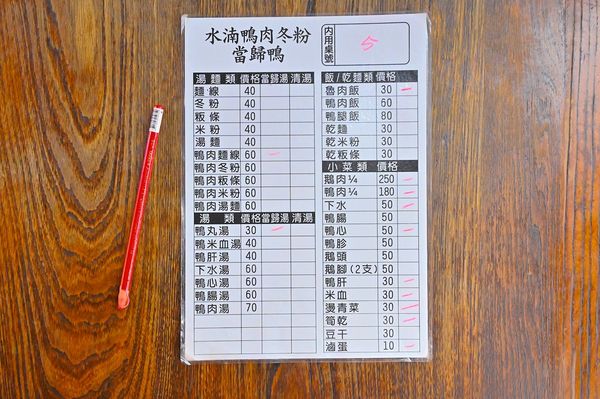 水湳鴨肉冬粉
當歸鴨
內用桌號 5
湯麵類 價格 當歸湯 清湯
麵線 40
冬粉 40
粄條 40
米粉 40
湯麵 40
鴨肉麵線 60
鴨肉冬粉 60
鴨肉粄條 60
鴨肉米粉 60
鴨肉湯麵 60
湯類 價格 當歸湯 清湯
鴨丸湯 30
鴨米血湯 40
鴨肝湯 40
下水湯 60
鴨心湯 60
鴨腸湯 60
鴨肉湯 70
飯/乾麵類 價格
魯肉飯 30
鴨肉飯 60
鴨腿飯 80
乾麵 30
乾米粉 30
乾粄條 30
小菜類 價格
鵝肉¼ 250
鴨肉¼ 180
下水 50
鴨腸 50
鴨心 50
鴨胗 50
鵝頭 50
鵝腳(2支) 50
鴨肝 30
米血 30
燙青菜 30
筍乾 30
豆干 30
滷蛋 10